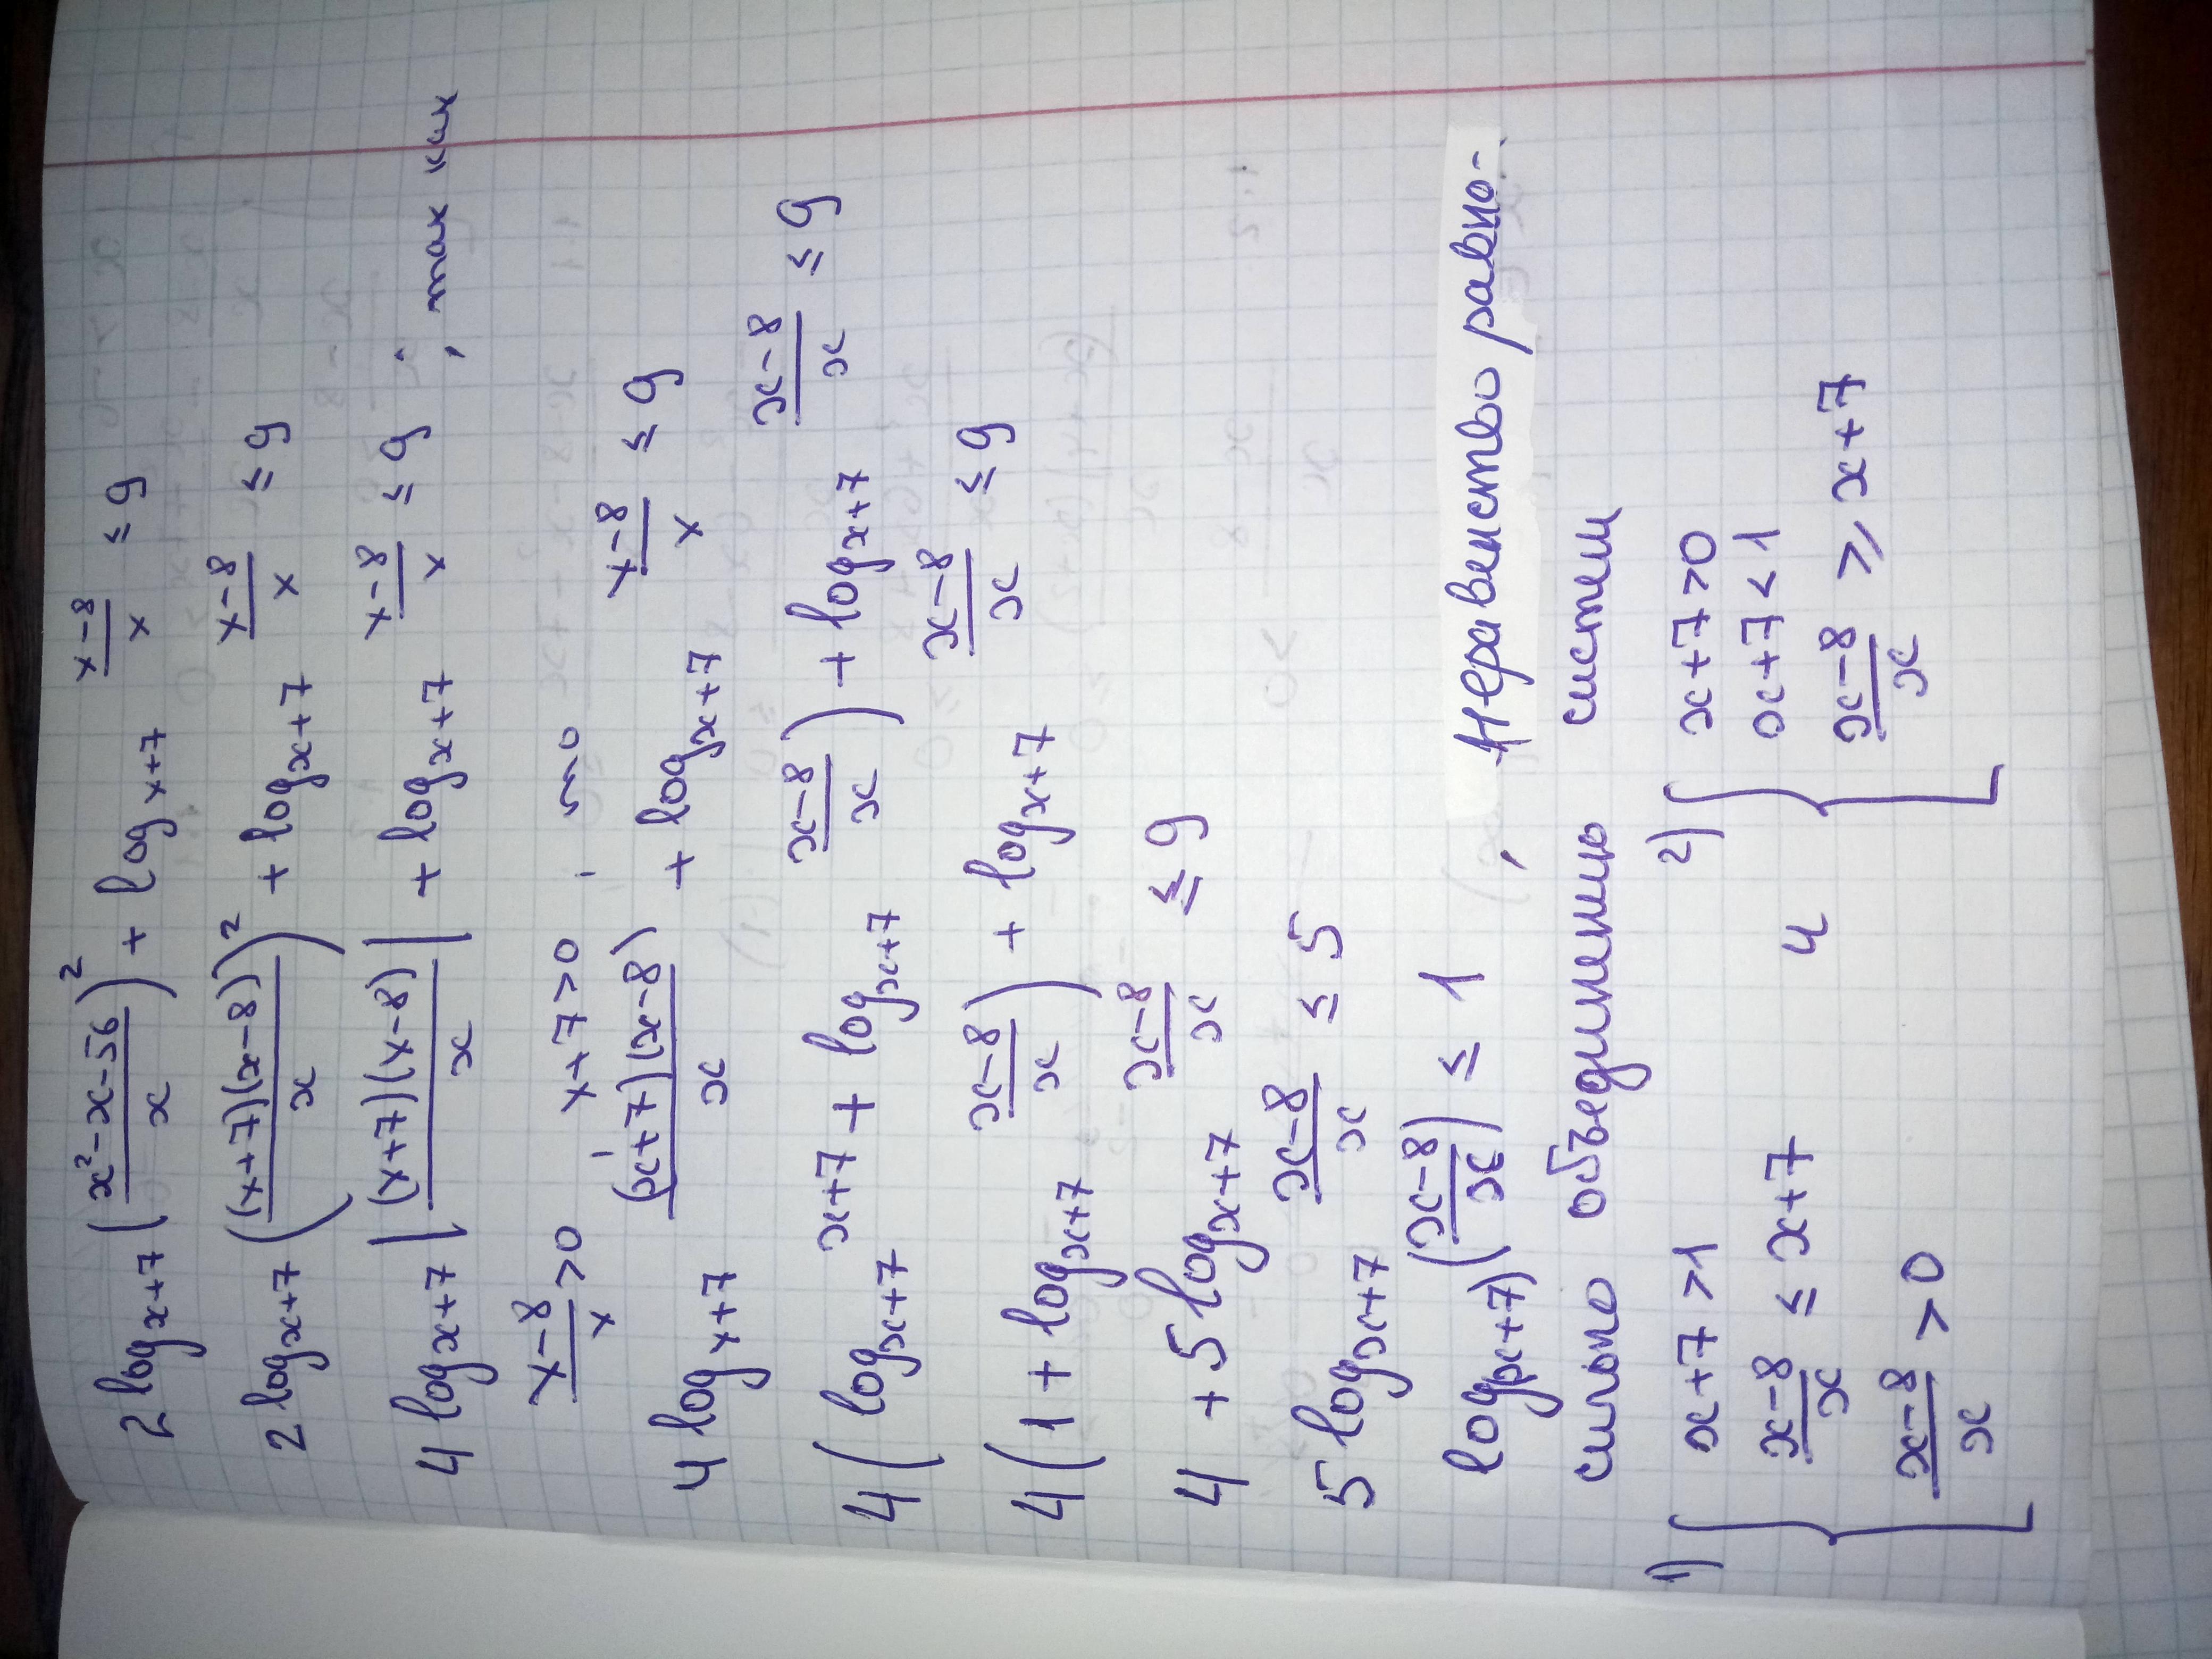 2 log_{x+7} ((x²-x-56)/x)² + log_{x+7} (x-8)/x ≤ 9
2 log_{x+7} ((x+7)(x-8)/x)² + log_{x+7} (x-8)/x ≤ 9
4 log_{x+7} |(x+7)(x-8)/x| + log_{x+7} (x-8)/x ≤ 9 ; так как
(x-8)/x > 0 x+7>0 ; то
4 log_{x+7} (x+7)(x-8)/x + log_{x+7} (x-8)/x ≤ 9
4 (log_{x+7} x+7 + log_{x+7} (x-8)/x) + log_{x+7} (x-8)/x ≤ 9
4 (1 + log_{x+7} (x-8)/x) + log_{x+7} (x-8)/x ≤ 9
4 + 5 log_{x+7} (x-8)/x ≤ 9
5 log_{x+7} (x-8)/x ≤ 5
log_{(x+7)} ((x-8)/x) ≤ 1 , неравенство равно-
сильно объединению систем
1) { x+7>1 и 2) { x+7>0
(x-8)/x ≤ x+7 x+7<1
(x-8)/x > 0 (x-8)/x ≥ x+7